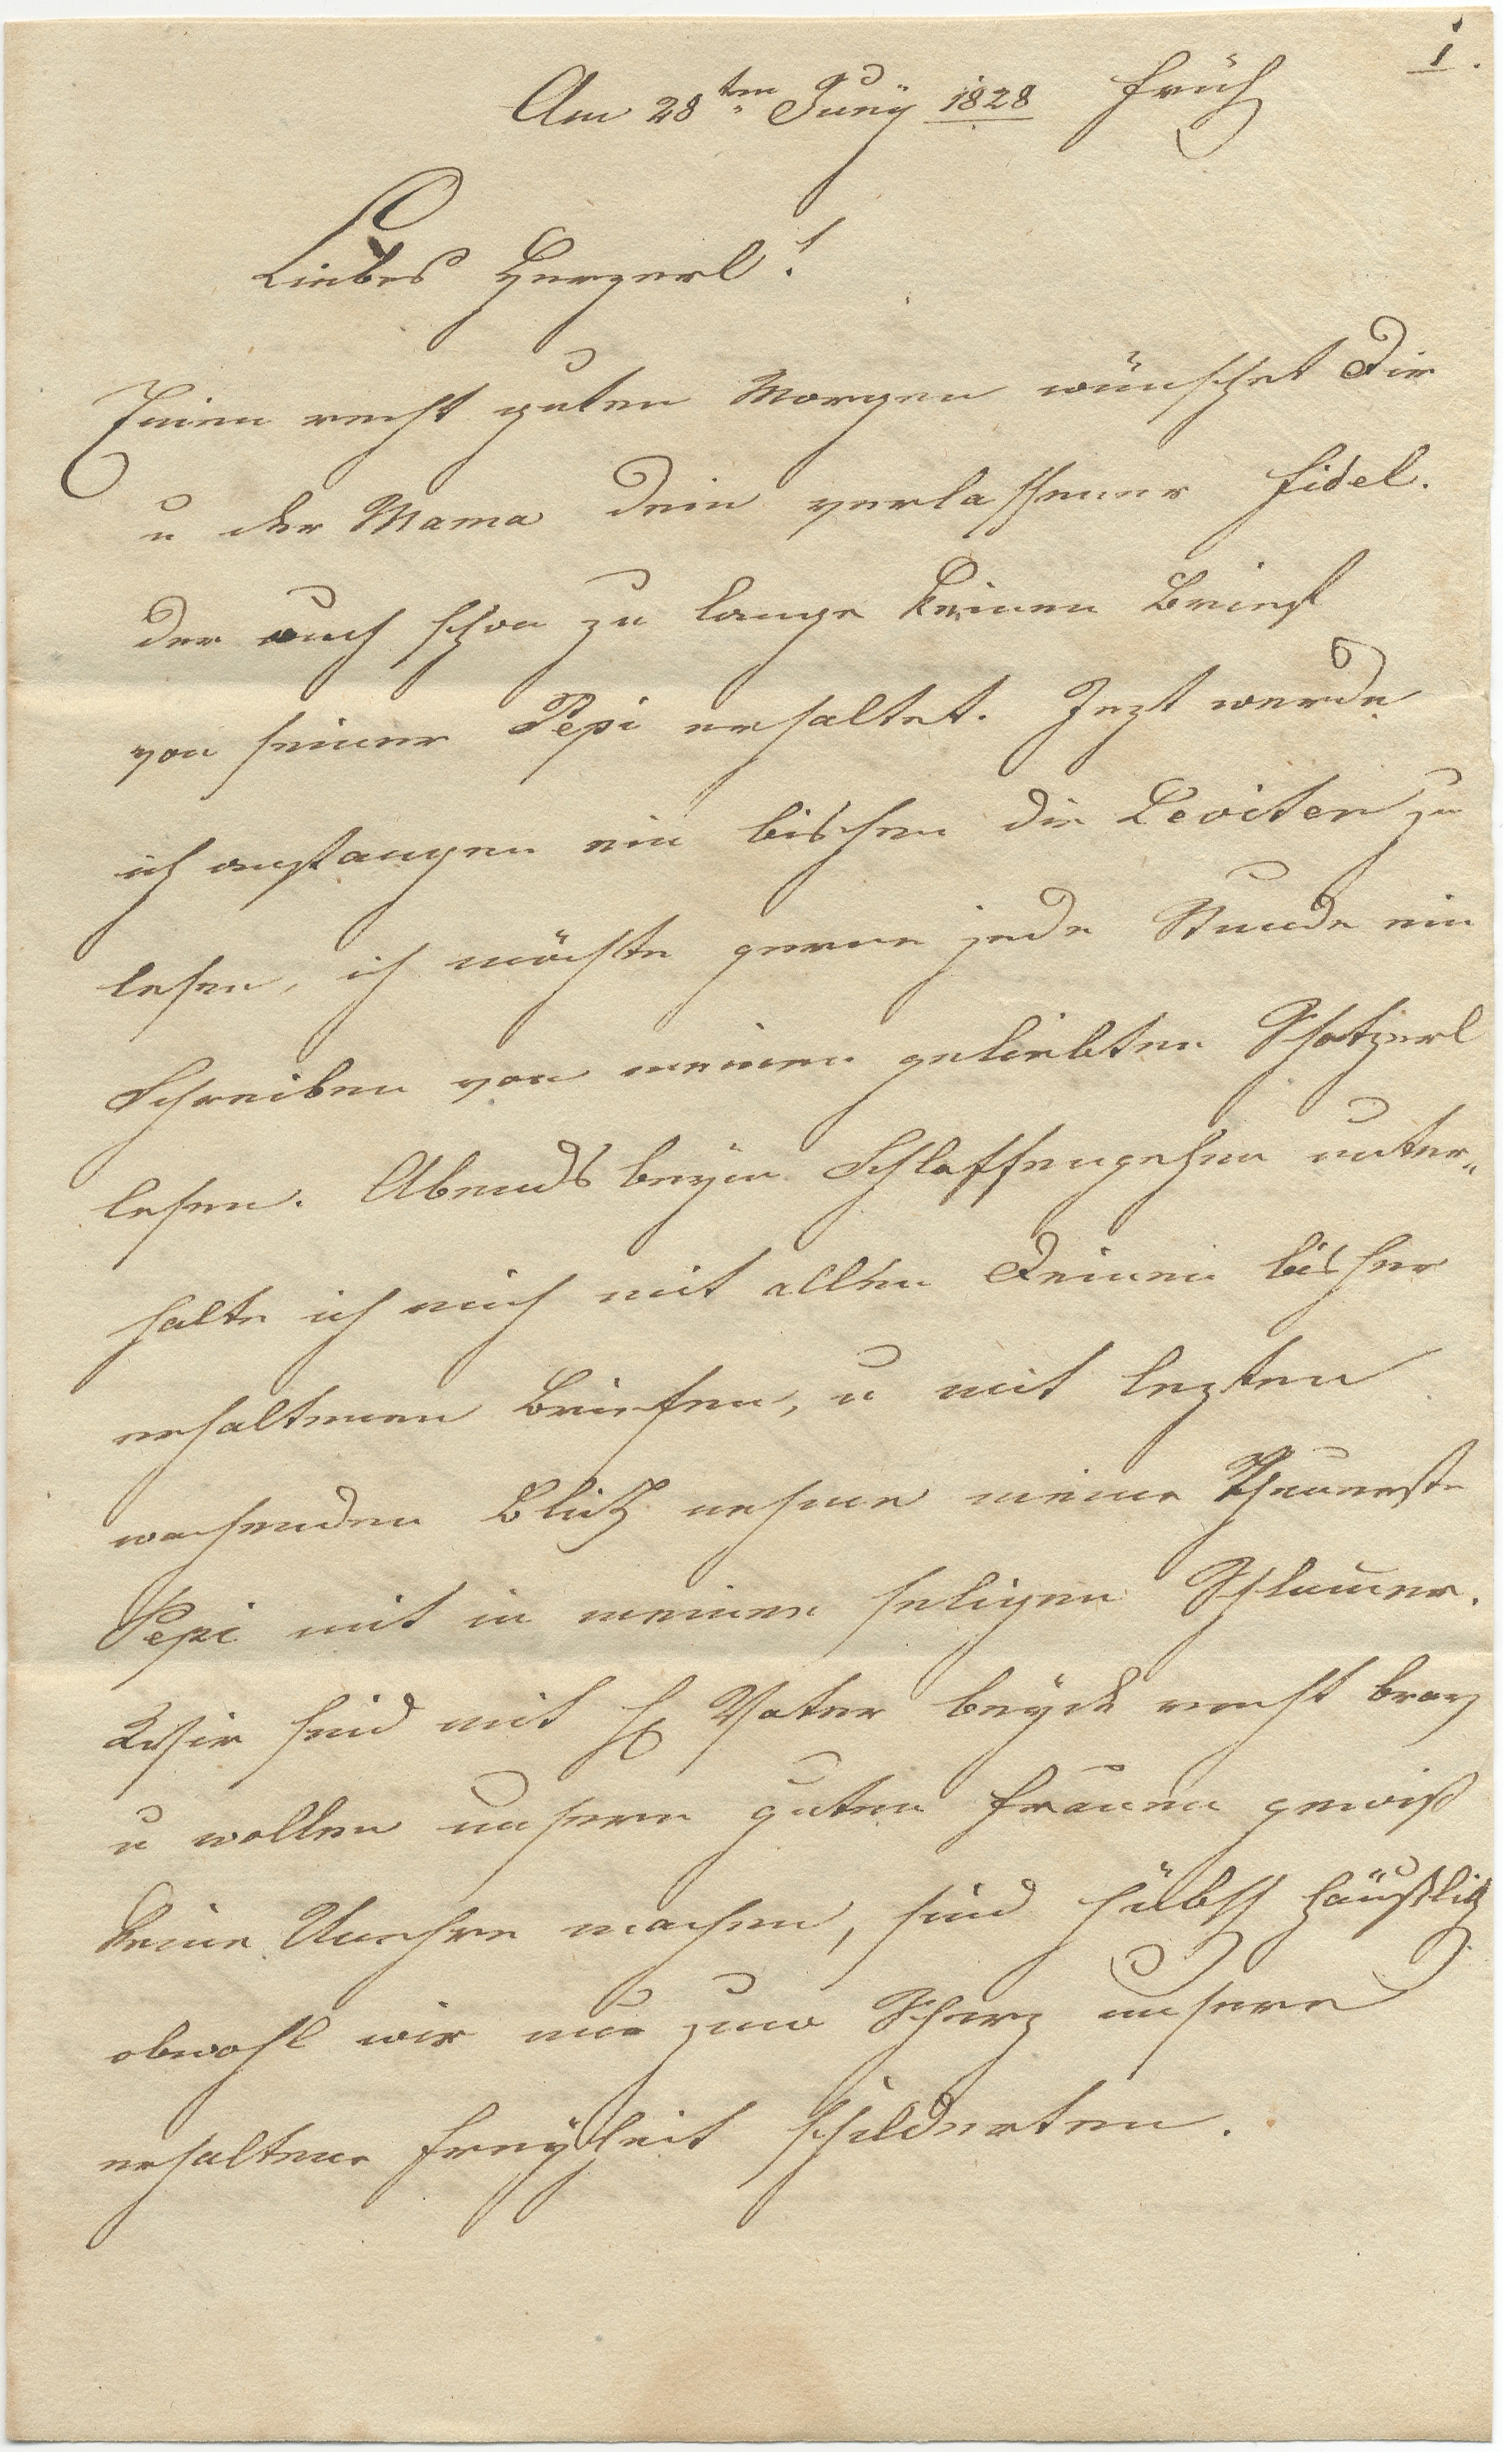 1.
Am 28ten Juny 1828 früh
Liebes Herzerl!
Einen recht guten Morgen wünschet Dir
u der Mama Dein verlassener Fidel.
der auch schon zu lange keinen Brief
von seiner Pepi erhaltet. Jezt werde
ich anfangen ein bischen die Leviten zu
lesen, ich möchte gerne jede Stunde ein
Schreiben von meinen geliebten Schatzerl
lesen. Abends beym Schlaffengehen unter„
halte ich mich mit allen Deinen bisher
erhaltenen Briefen, u mit lezten
wachenden Blick nehme meine Theuerste
Pepi mit in meinen seligen Schlumer.
Wir sind mit H Vater beyde recht brav
u wollen unsern guten Frauen gewiß
keine Unehre machen, sind hübsch häußlich
obwohl wir nur zum Scherz unsere
erhaltene Freyheit schilderten.